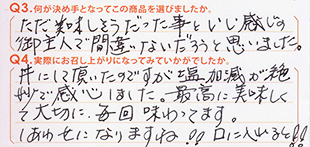 Q3.何が決め手となってこの商品を選びましたか。
ただ美味しそうだった事といい感じの
御主人で間違いないだろうと思いました。
Q4.実際にお召し上がりになってみていかがでしたか。
丼にして頂いたのですが塩加減が絶
妙で感心しました。最高に美味しく
て大切に、毎回味わってます。
しあわせになりますね!!口に入れると!!